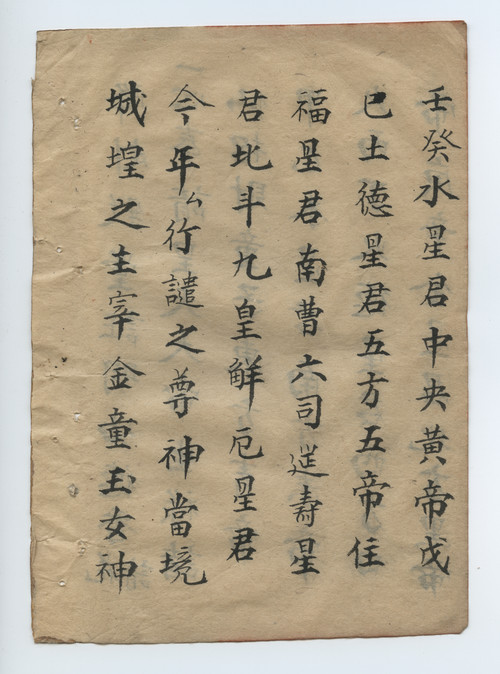 壬癸水星君中央黃帝戊
巳土德星君五方五帝住
福星君南曹六司延壽星
君北斗九皇觧厄星君
今年厶行譴之尊神當境
城堭之主宰金童玉女神